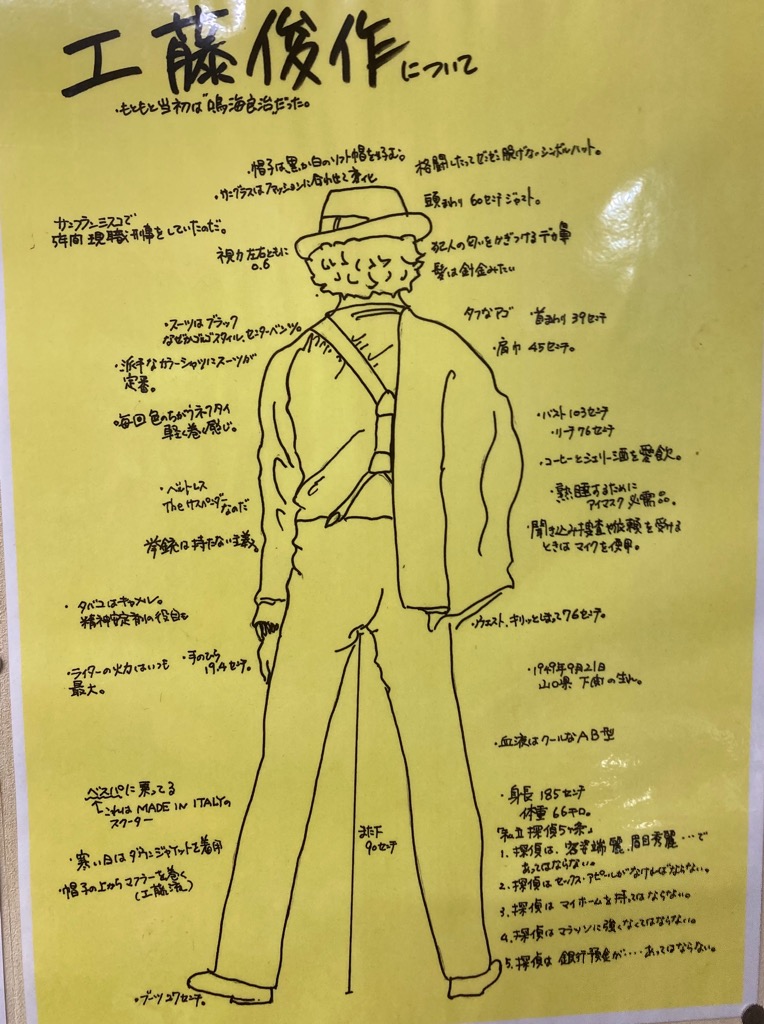 工藤俊作について
・もともと当初は「鳴海良治」だった。
・帽子は、黒か白のソフト帽を好む。
・サングラスはファッションに合わせて変化
格闘したってぜったい脱げないシンボルハット。
頭まわり 60センチジャスト。
サンフランシスコで
5年間 現職刑事をしていたのだ。
視力 左右ともに
0.6
犯人の匂いをかぎつけるデカ鼻
髪は針金みたい
・スーツは ブラック
なぜかゴルゴスタイル、センターベンツ。
タフなアゴ
・首まわり 39センチ
・肩巾 45センチ。
・派手なカラーシャツにスーツが
定番。
・毎回 色のちがうネクタイ
軽く巻く感じ。
・バスト 103センチ
・リーチ 76センチ
・コーヒーとシェリー酒を愛飲。
・ベルトレス
The サスペンダーなのだ
・熟睡するために
アイマスク 必需品。
拳銃は持たない主義。
・聞き込み捜査や依頼を受ける
ときは マイクを使用。
・タバコはキャメル。
精神安定剤の役目も
・ウエスト、キリッとしまって76センチ。
・手のひら
19.4センチ。
・ライターの火力はいつも
最大。
・1949年9月21日
山口県 下関の生れ。
・血液はクールなAB型
ベスパに乗ってる
↑これは MADE IN ITALYの
スクーター
・身長 185センチ
体重 66キロ。
また下
90センチ
・寒い日はダウンジャケットを着用
・帽子の上からマフラーを巻く
(工藤流)
「私立探偵5ヶ条」
1. 探偵は、容姿端麗、眉目秀麗…で
あってはならない。
2. 探偵はセックス・アピールがなければならない。
3. 探偵は マイホームを持ってはならない。
4. 探偵はマラソンに強くなくてはならない。
5. 探偵は 銀行預金が‥‥あってはならない。
・ブーツ 27センチ。